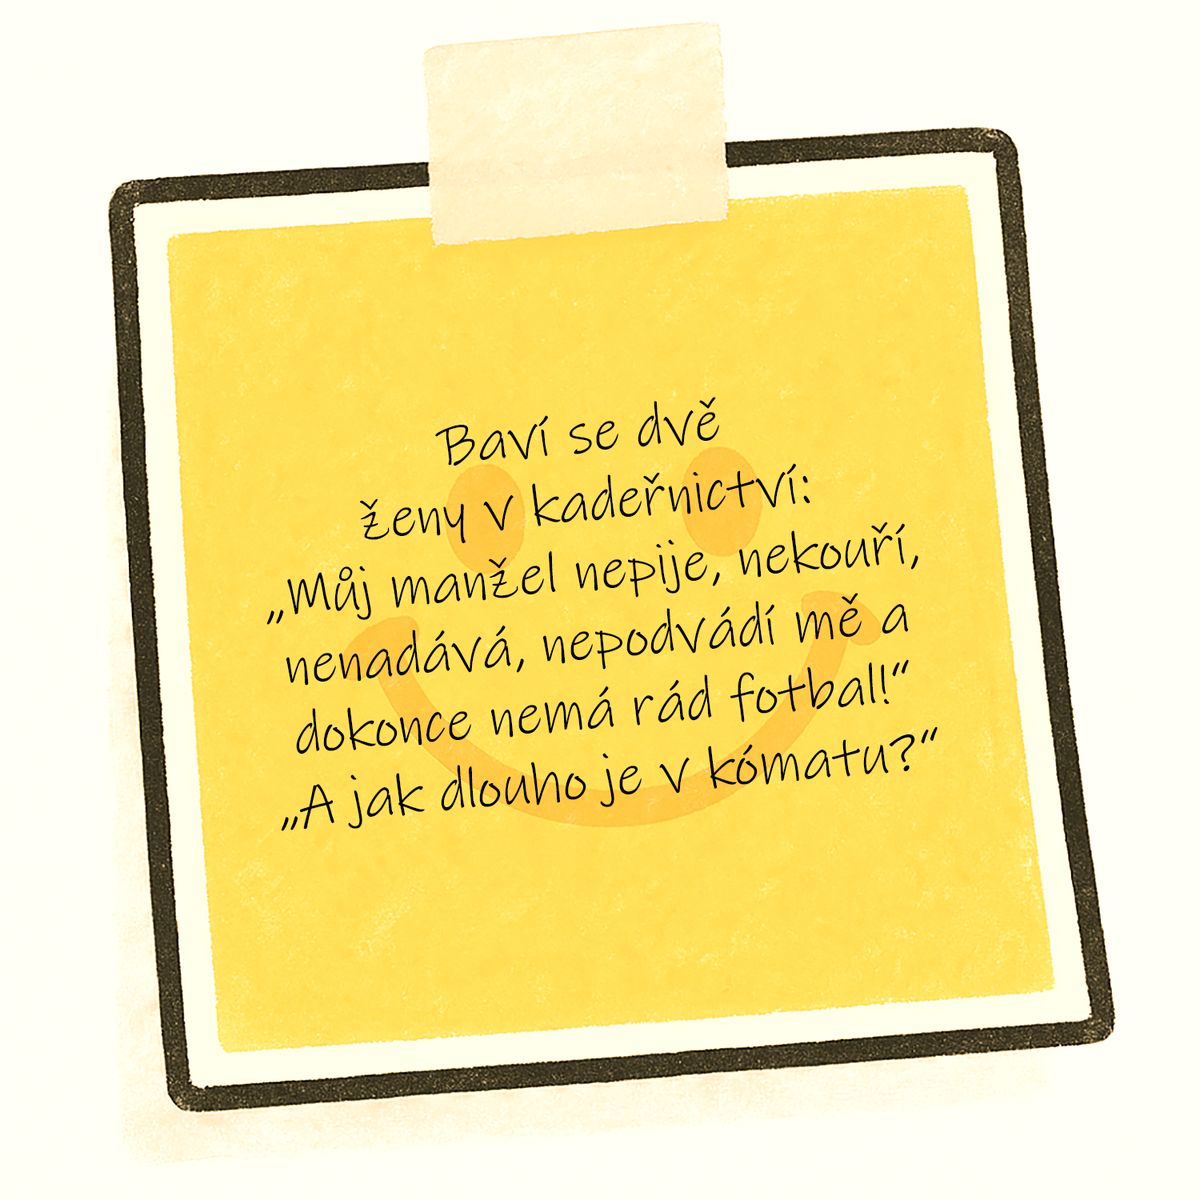 Baví se dvě
ženy v kadeřnictví:
„Můj manžel nepije, nekouří,
nenadává, nepodvádí mě a
dokonce nemá rád fotbal!“
„A jak dlouho je v kómatu?“